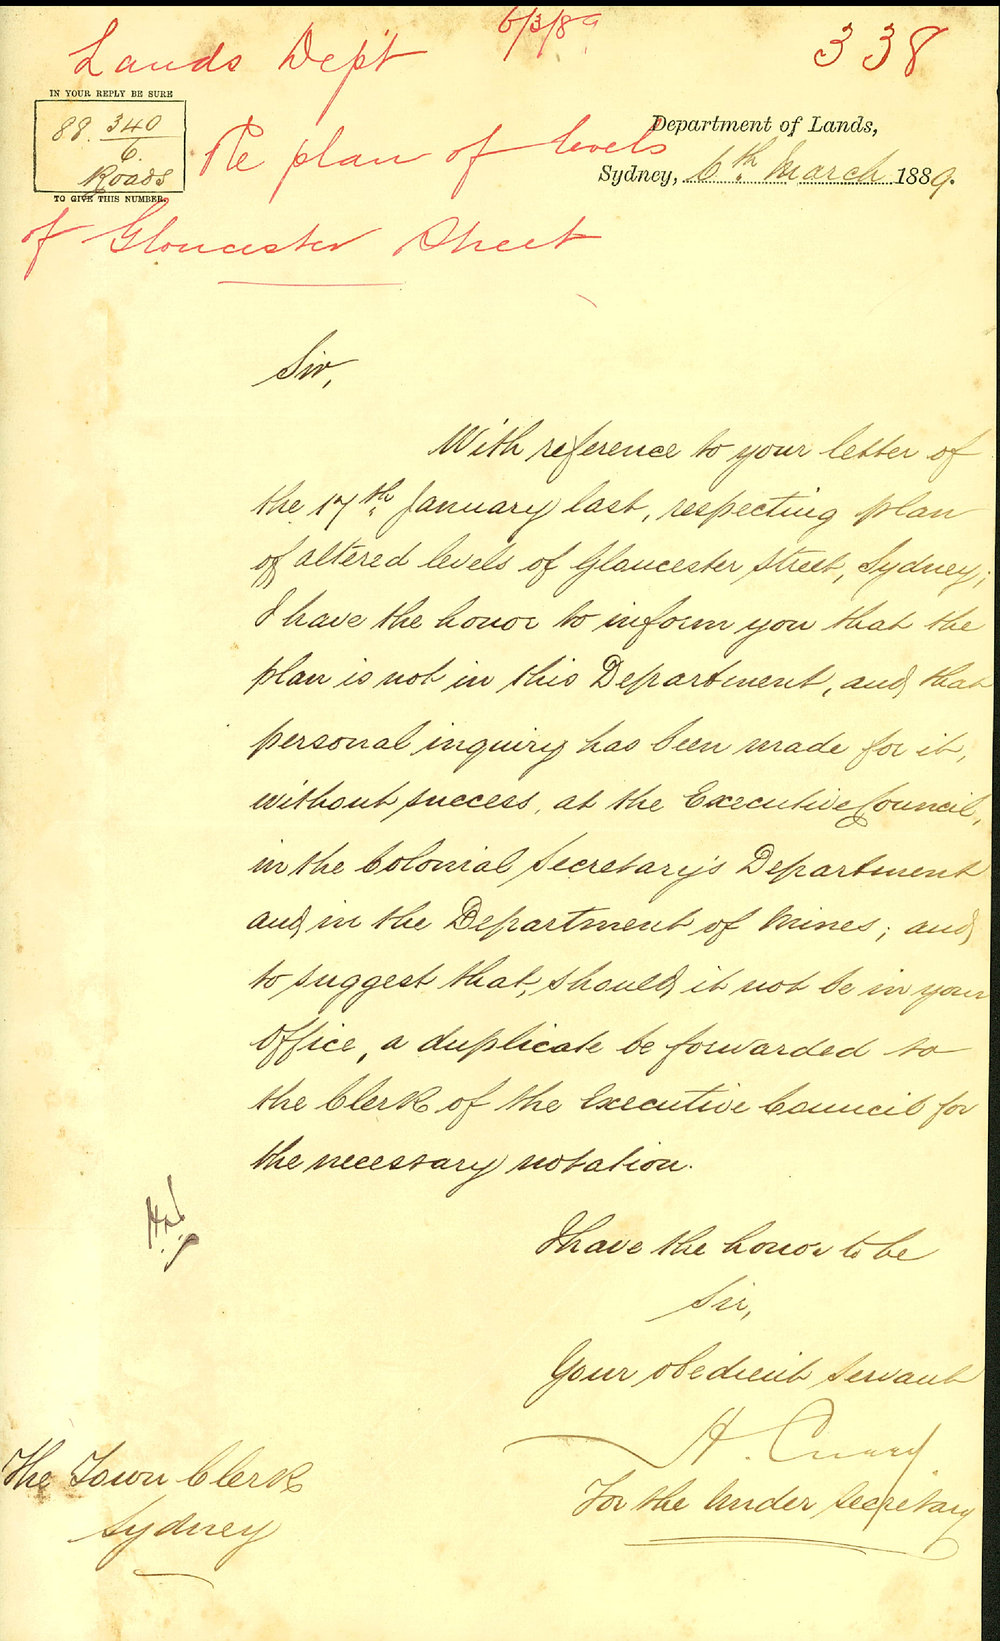 6/3/89
338
Lands Dep't
IN YOUR REPLY BE SURE
88. 340
6.
Roads
TO GIVE THIS NUMBER.
Re plan of levels
of Gloucester Street
Department of Lands,
Sydney, 6th March 1889.
Sir,
With reference to your letter of
the 17th January last, respecting plan
of altered levels of Gloucester Street, Sydney;
I have the honor to inform you that the
plan is not in this Department, and that
personal inquiry has been made for it,
without success, at the Executive Council,
in the Colonial Secretary's Department
and in the Department of Mines; and
to suggest that, should it not be in your
Office, a duplicate be forwarded to
the Clerk of the Executive Council for
the necessary notation.
I have the honor to be
Sir,
Your obedient servant
H.
For the Under Secretary
The Town Clerk
Sydney